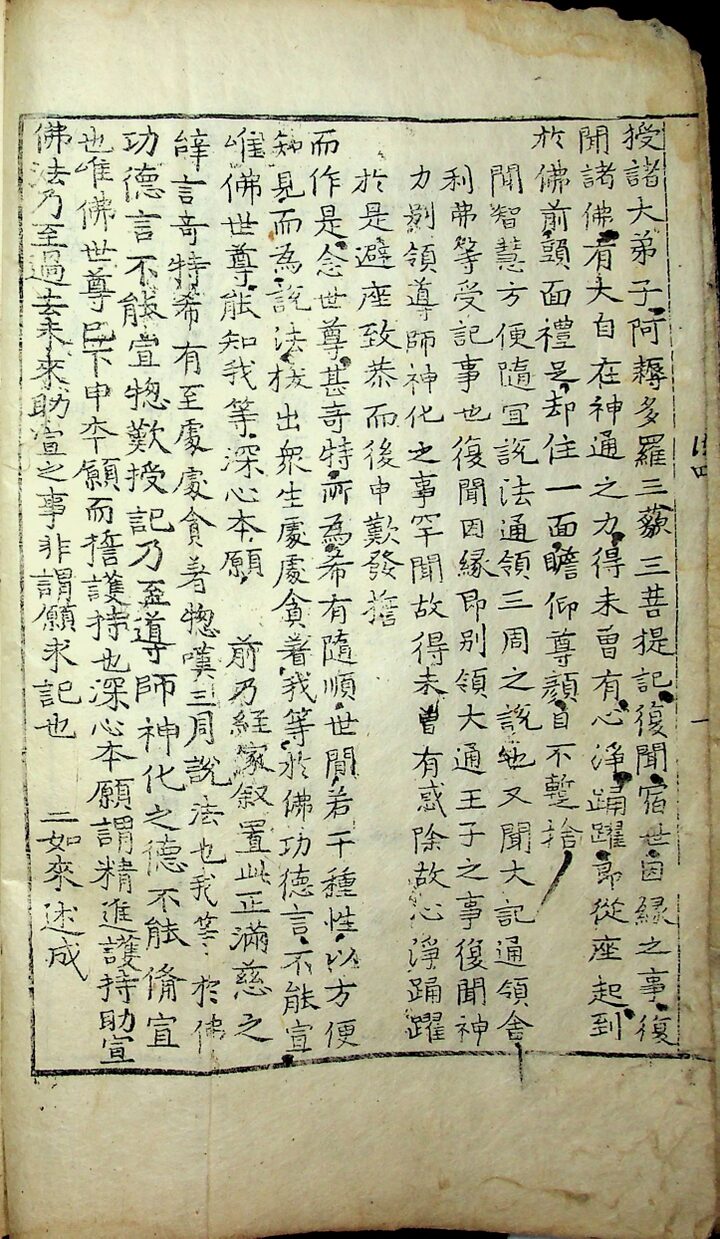 授諸大弟子阿耨多羅三藐三菩提記復聞宿世因緣之事復
聞諸佛有大自在神通之力得未曾有心淨踊躍即從座起到
於佛前頭面禮足却住一面瞻仰尊顏目不暫捨
聞智慧方便隨宜說法通領三周之說也又聞大記通領舍
利弗等受記事也復聞因緣即別領大通王子之事復聞神
力別領導師神化之事罕聞故得未曾有惑除故心淨踊躍
於是避座致恭而後申歎發擔
而作是念世尊甚奇特所為希有隨順世間若干種性以方便
知見而為說法拔出眾生處處貪著我等於佛功德言不能宣
唯佛世尊能知我等深心本願 前乃經家叙置此正滿慈之
辝言奇特希有至處處貪著惣嘆三周說法也我等於佛
功德言不能宣惣歎授記乃至導師神化之德不能俻宣
也唯佛世尊已下申本願而擔護持也深心本願謂精進護持助宣
佛法乃至過去未來助宣之事非謂願求記也 二如來述成
法四
一